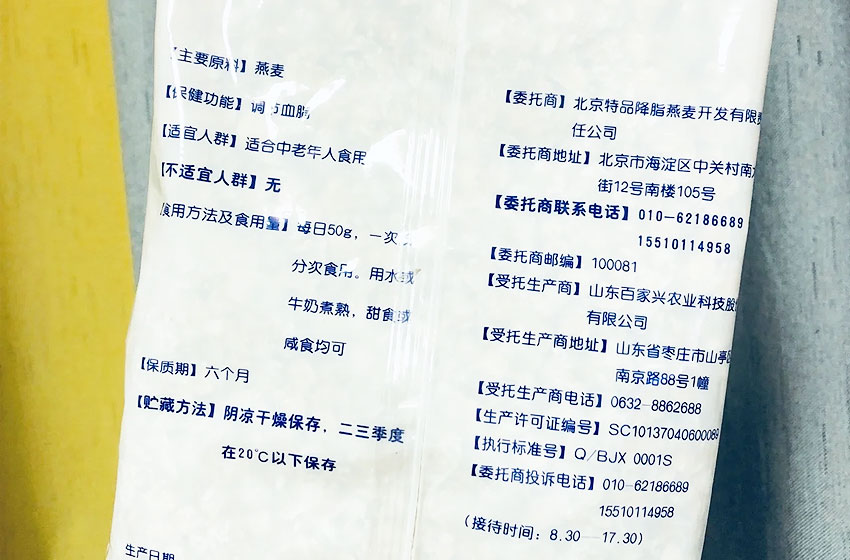 【主要原料】燕麦
【保健功能】调节血脂
【适宜人群】适合中老年人食用
【不适宜人群】无
食用方法及食用量】每日50g，一次
分次食用。用水或
牛奶煮熟，甜食或
咸食均可
【保质期】六个月
【贮藏方法】阴凉干燥保存，二三季度
在20℃以下保存
生产日期
【委托商】北京特品降脂燕麦开发有限责
任公司
【委托商地址】北京市海淀区中关村南大
街12号南楼105号
【委托商联系电话】010-62186689
15510114958
【委托商邮编】100081
【受托生产商】山东百家兴农业科技股份
有限公司
【受托生产商地址】山东省枣庄市山亭区
南京路88号1幢
【受托生产商电话】0632-8862688
【生产许可证编号】SC10137040600089
【执行标准号】Q/BJX 0001S
【委托商投诉电话】010-62186689
15510114958
(接待时间：8.30—17.30)